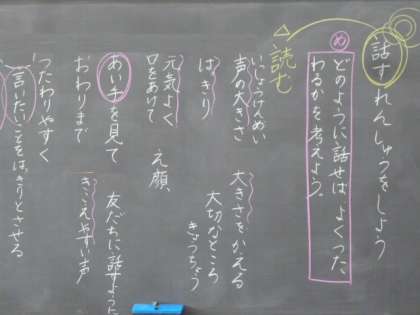 話すれんしゅうをしよう
め
どのように話せば、よくつた
わるかを考えよう。
読む
いっしょうけんめい
声の大きさ 大きさをかえる
はっきり 大切なところ
きょうちょう
元気よく
口をあけて え顔、
あい手を見て 友だちに話すように
おわりまで きこえやすい声
つたわりやすく
言いたいことをはっきりとさせる